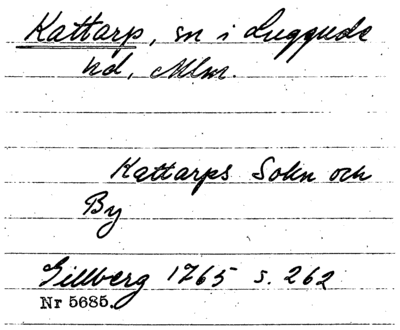 Kattarp, sn i Luggude
hd, Mlm.
Kattarps Sokn och
By
Gillberg 1765 s. 262
Nr 5685.